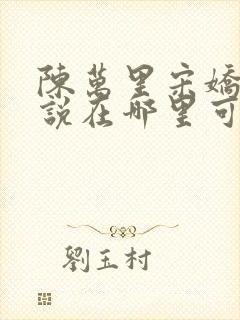 陳萬里宋嬌
說在哪里可
劉玉村